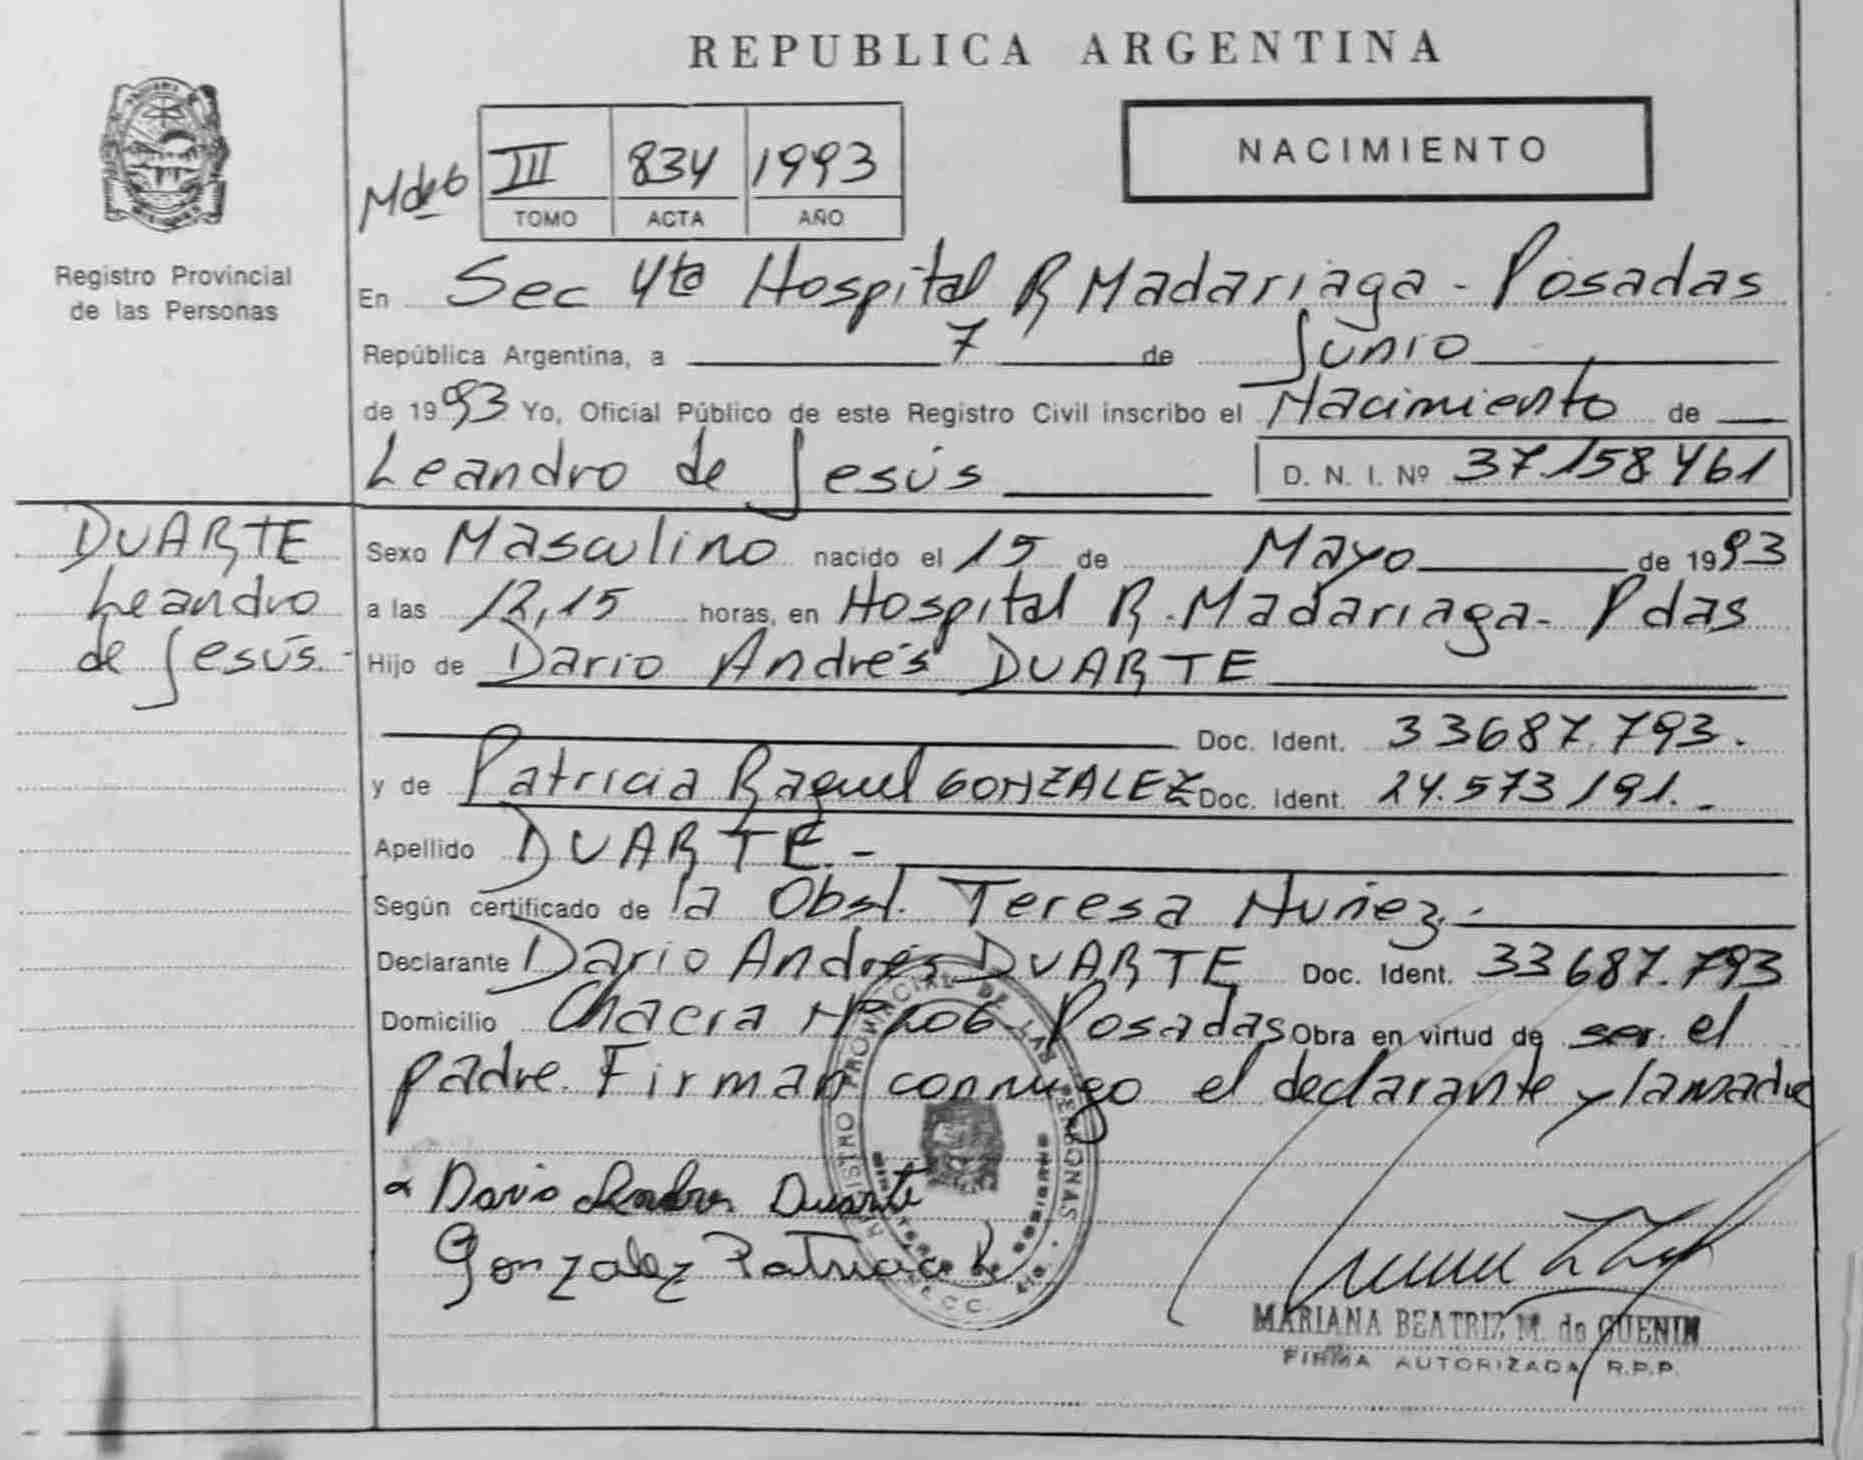 REPUBLICA ARGENTINA
NACIMIENTO
III 834 1993
TOMO ACTA AÑO
Registro Provincial
de las Personas
En Sec 4ta Hospital R Madariaga - Posadas
República Argentina, a 7 de Junio
de 1993 Yo, Oficial Público de este Registro Civil inscribo el Nacimiento de
Leandro de Jesús D. N. I. Nº 37.158.461
DUARTE
Leandro
de Jesús.-
Sexo Masculino nacido el 15 de Mayo de 1993
a las 12,15 horas, en Hospital R. Madariaga - Pdas
Hijo de Dario Andrés DUARTE
Doc. Ident. 33687.793.
y de Patricia Raquel GONZALEZ Doc. Ident. 24.573 191.-
Apellido DUARTE.-
Según certificado de la Obst. Teresa Nuñez.-
Declarante Dario Andrés DUARTE Doc. Ident. 33687.793
Domicilio Chacra Nº 106 - Posadas Obra en virtud de ser el
padre. Firman conmigo el declarante y la madre
Dario Duarte
Gonzalez Patricia R
REGISTRO PROVINCIAL DE LAS PERSONAS
MARIANA BEATRIZ M. de GUENIN
FIRMA AUTORIZADA R.P.P.